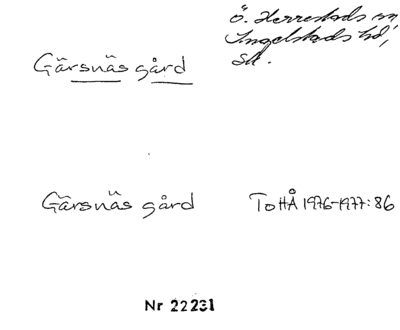 Ö. Herrestads sn,
Ingelstads hd,
Sk.
Gärsnäs gård
Gärsnäs gård
ToHÅ 1976-1977:86
Nr 22231